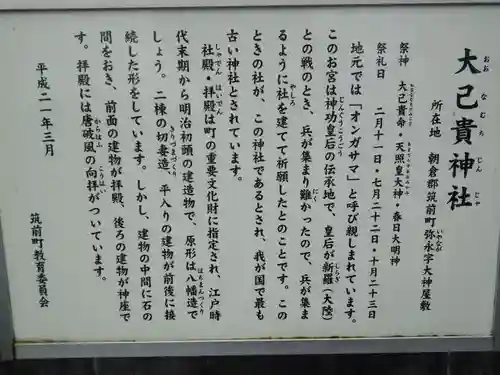 大己貴神社
所在地　朝倉郡筑前町弥永字大神屋敷
祭神　大己貴命・天照皇大神・春日大明神
祭礼日　二月十一日・七月二十二日・十月二十三日
地元では「オンガサマ」と呼び親しまれています。
このお宮は神功皇后の伝承地で、皇后が新羅（大陸）
との戦のとき、兵が集まり難かったので、兵が集ま
るように社を建てて祈願したとのことです。この
ときの社が、この神社であるとされ、我が国で最も
古い神社とされています。
社殿・拝殿は町の重要文化財に指定され、江戸時
代末期から明治初頭の建造物で、原形は八幡造で
しょう。二棟の切妻造、平入りの建物が前後に接
続した形をしています。しかし、建物の中間に石の
間をおき、前面の建物が拝殿、後ろの建物が神座で
す。拝殿には唐破風の向拝がついています。
平成二一年三月
筑前町教育委員会